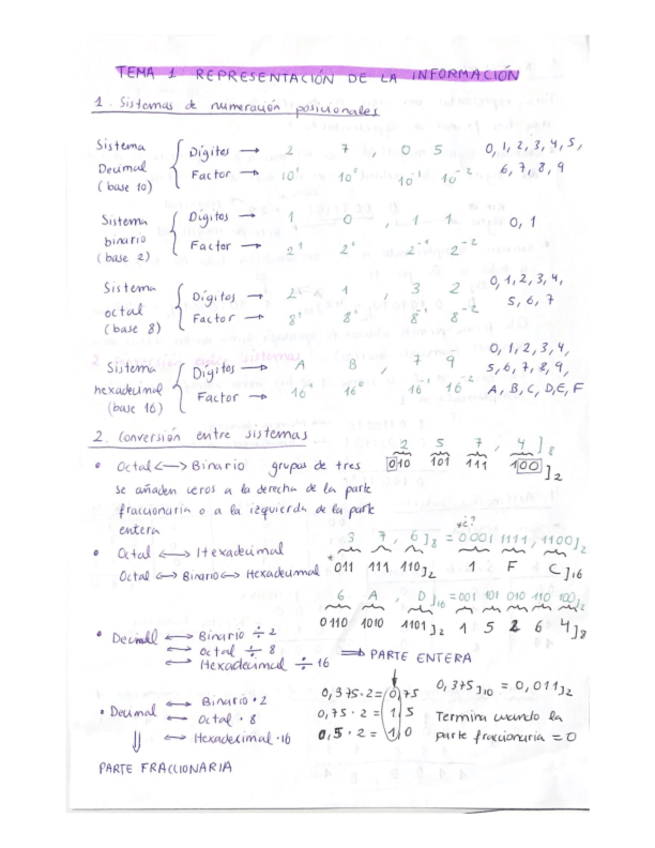 TEMA 1 REPRESENTACIÓN DE LA INFORMACIÓN
1. Sistemas de numeración posicionales
Sistema Decimal (base 10) { Dígitos → 2 7 , 0 5
Factor → 10¹ 10⁰ 10⁻¹ 10⁻²
0, 1, 2, 3, 4, 5,
6, 7, 8, 9
Sistema binario (base 2) { Dígitos → 1 0 , 1 1
Factor → 2¹ 2⁰ 2⁻¹ 2⁻²
0, 1
Sistema octal (base 8) { Dígitos → 2 1 , 3 2
Factor → 8¹ 8⁰ 8⁻¹ 8⁻²
0, 1, 2, 3, 4,
5, 6, 7
Sistema hexadecimal (base 16) { Dígitos → A B , 7 9
Factor → 16 16⁰ 16⁻¹ 16⁻²
0, 1, 2, 3, 4,
5, 6, 7, 8, 9,
A, B, C, D, E, F
2. Conversión entre sistemas
• Octal <-> Binario grupos de tres
se añaden ceros a la derecha de la parte
fraccionaria o a la izquierda de la parte
entera
2 5 7 , 4 ]8
010 101 111 100 ]2
• Octal <-> Hexadecimal
Octal <-> Binario <-> Hexadecimal
3 7 , 6 ]8 = 0001 1111 , 1100 ]2
011 111 110 ]2 1 F C ]16
6 A , D ]16 = 001 101 010 110 100 ]2
0110 1010 1101 ]2 1 5 2 6 4 ]8
• Decimal <-> Binario ÷ 2
<-> Octal ÷ 8
<-> Hexadecimal ÷ 16
⇒ PARTE ENTERA
• Decimal <-> Binario · 2
<-> Octal · 8
<-> Hexadecimal · 16
⇓
PARTE FRACCIONARIA
0,375 · 2 = 0,75
0,75 · 2 = 1,5
0,5 · 2 = 1,0
0,375 ]10 = 0,011 ]2
Termina cuando la
parte fraccionaria = 0